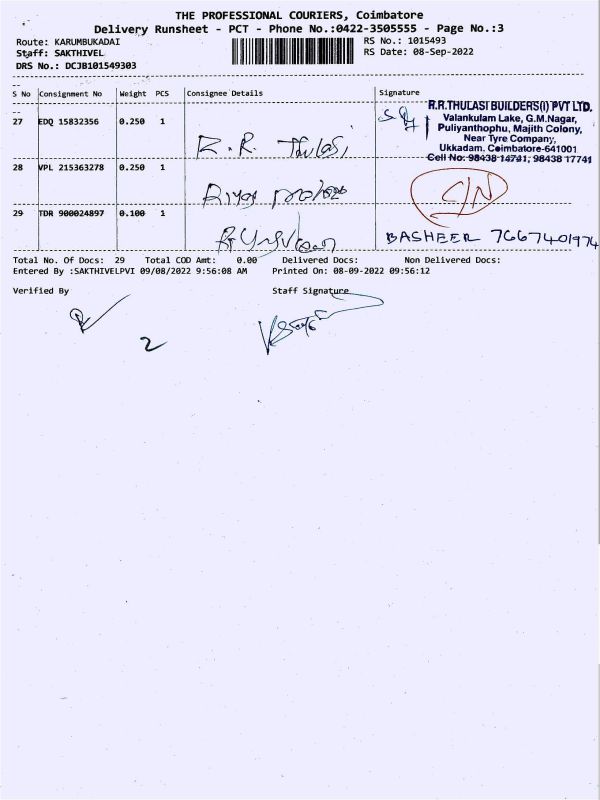 THE PROFESSIONAL COURIERS, Coimbatore
Delivery Runsheet - PCT - Phone No.:0422-3505555 - Page No.:3
Route: KARUMBUKADAI RS No.: 1015493
Staff: SAKTHIVEL RS Date: 08-Sep-2022
DRS No.: DCJB101549303
S No Consignment No Weight PCS Consignee Details Signature
R.R.THULASI BUILDERS(I) PVT LTD.
Valankulam Lake, G.M.Nagar,
Puliyanthophu, Majith Colony,
Near Tyre Company,
Ukkadam, Coimbatore-641001
Cell No: 98438 14741, 98438 17741
27 EDQ 15832356 0.250 1 R.R. Thulasi
28 VPL 215363278 0.250 1 Riyas C/N
29 TDR 900024897 0.100 1 BASHEER 7667401974
Total No. Of Docs: 29 Total COD Amt: 0.00 Delivered Docs: Non Delivered Docs:
Entered By :SAKTHIVELPVI 09/08/2022 9:56:08 AM Printed On: 08-09-2022 09:56:12
Verified By Staff Signature
2